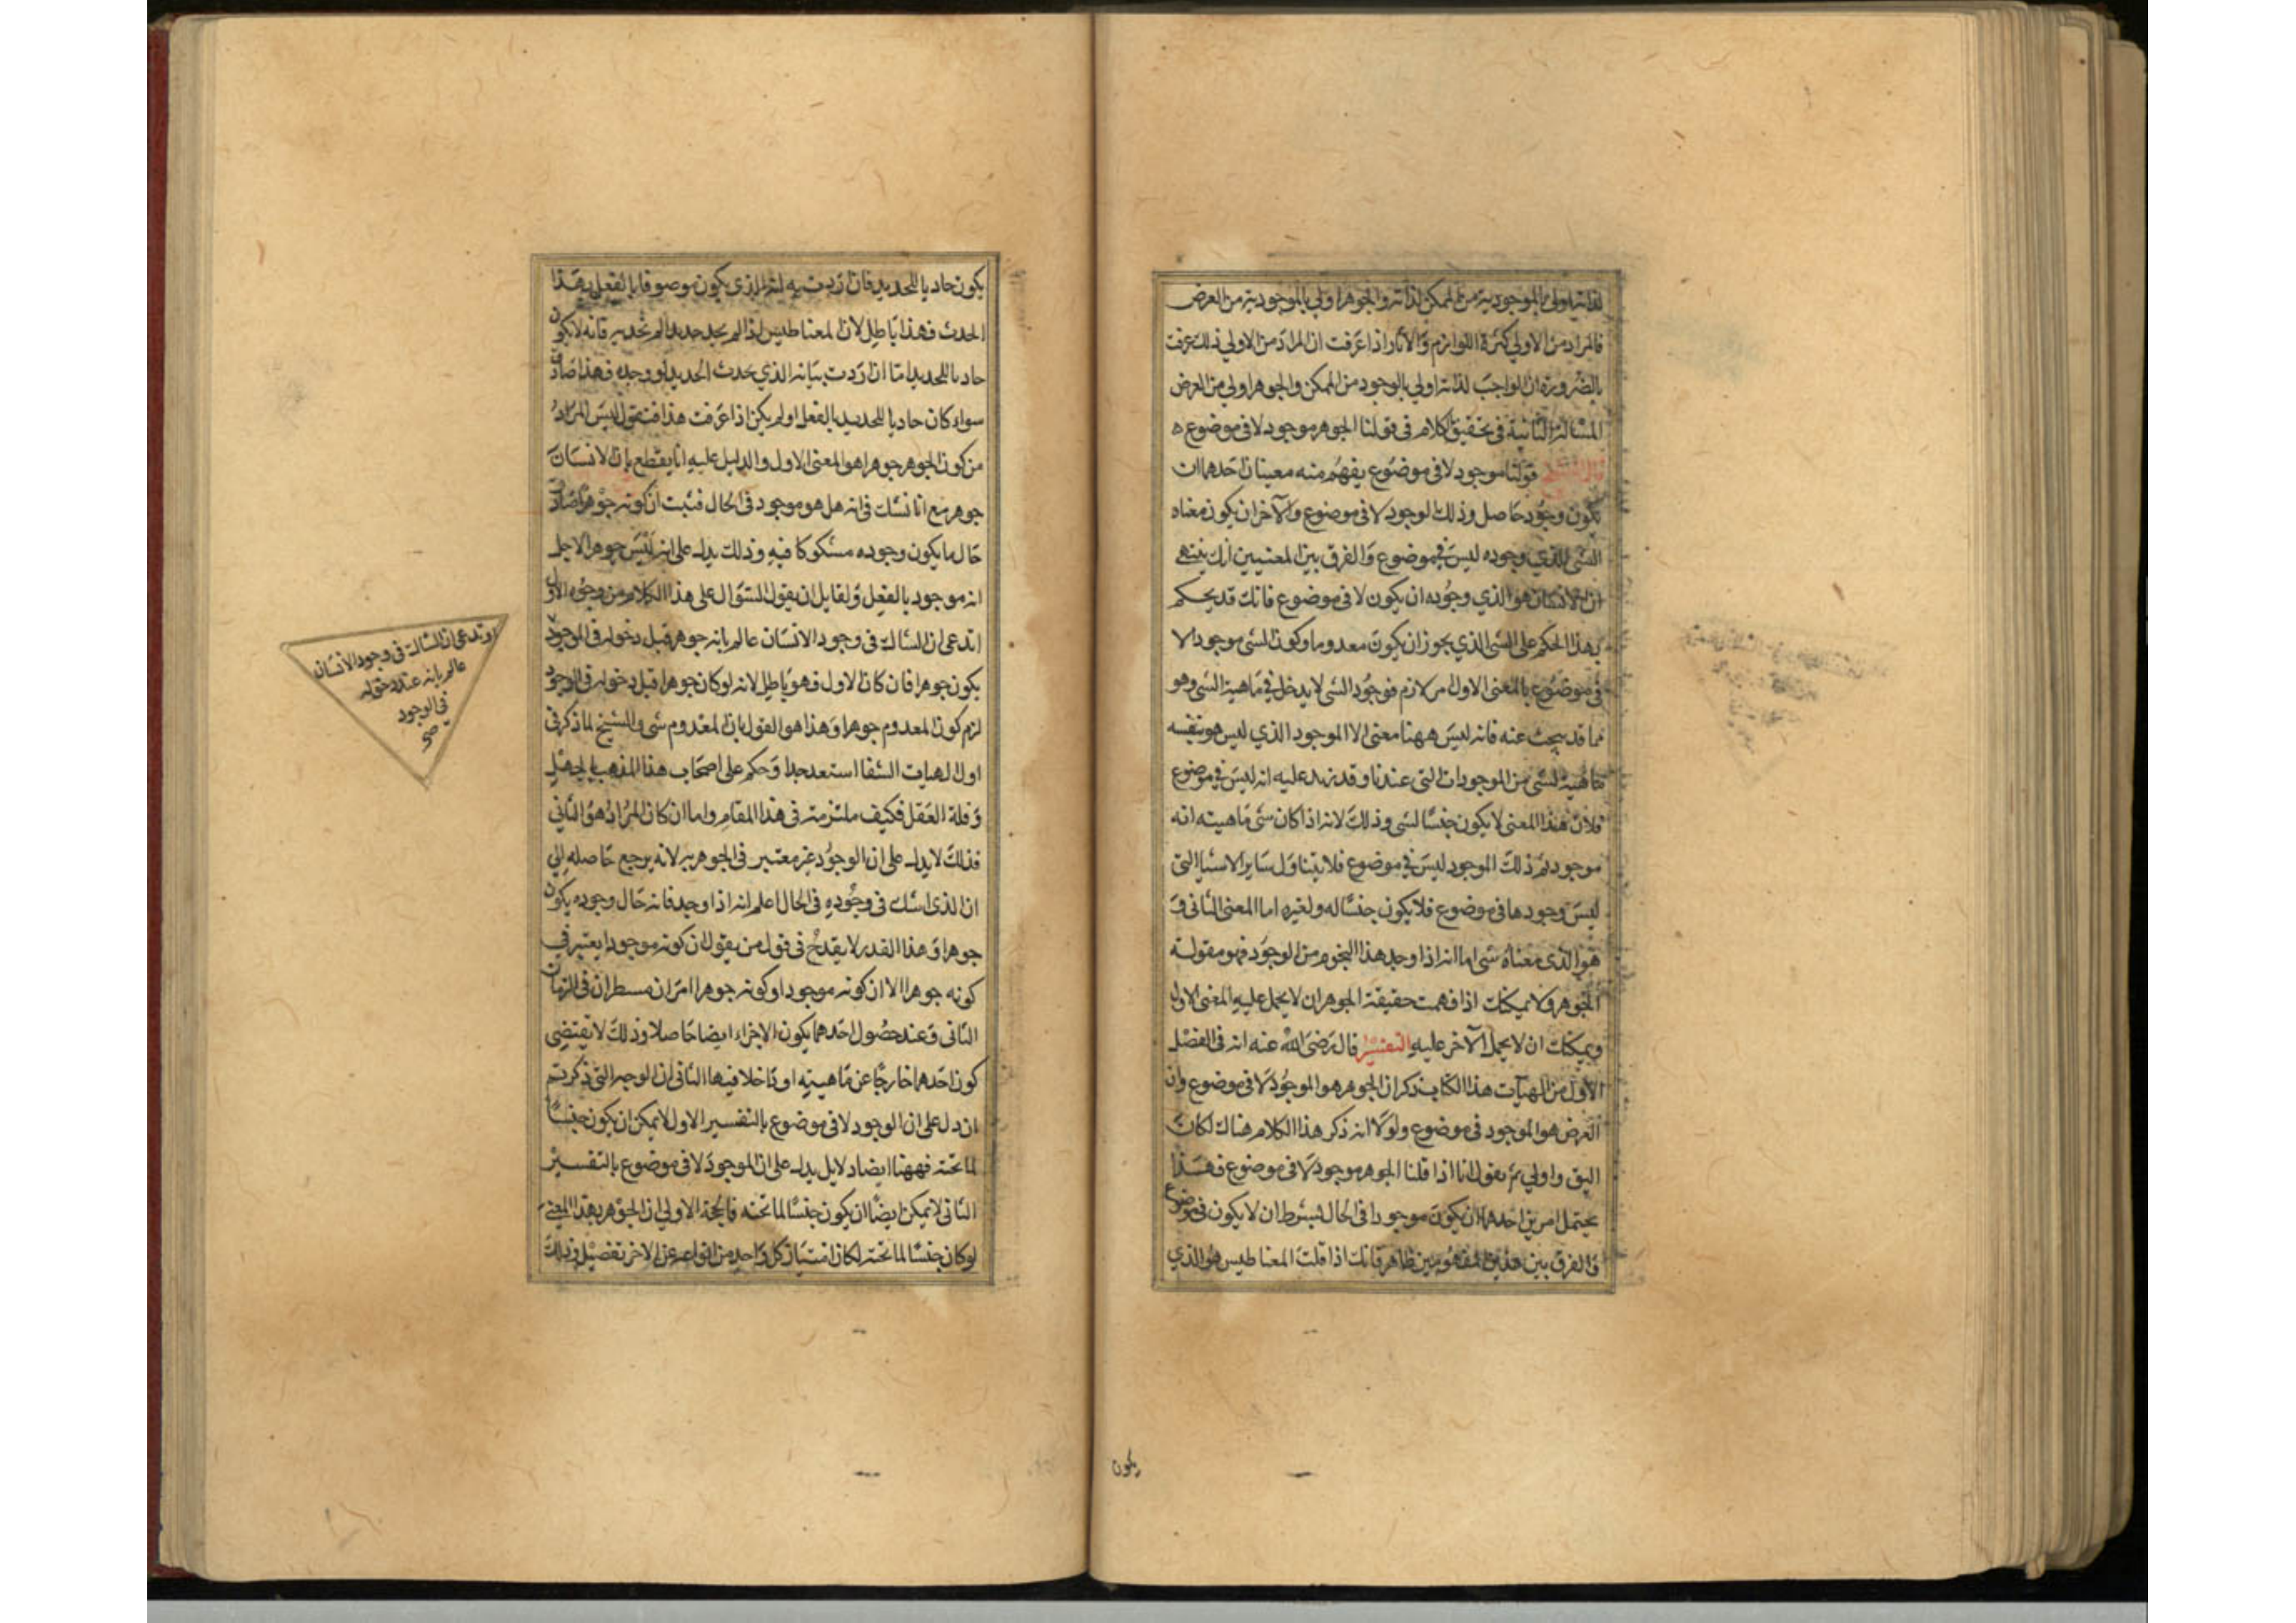 لذاته اولى بالموجودية من الممكن لذاته والجوهر اولي بالموجودية من العرض
فالمراد من الاولي كثرة اللوازم والآثار اذا عرفت ان المراد من الاولي ذلك عرفت
بالضرورة ان الواجب لذاته اولي بالوجود من الممكن والجوهر اولي من العرض
المسالة الثانية في تحقيق الكلام في قولنا الجوهر موجود لا في موضوع ه
قال الشيخ قولنا موجود لا في موضوع يفهم منه معينان احدهما ان
يكون وجود حاصل وذلك الوجود لا في موضوع والآخر ان يكون معناه
الشي الذي وجوده ليس في موضوع والفرق بين المعنيين انك
ان الانسان هو الذي وجوده ان يكون لا في موضوع فانك قد يحكم
بهذا الحكم على الشي الذي يجوز ان يكون معدوما وكون الشي موجود لا
في موضوع بالمعنى الاول من لازم فوجود الشي لا يدخل في ماهية الشي وهو
مما قد يبحث عنه فانه ليس ههنا معنى الا الموجود الذي ليس هو نفسه
ماهية لشي من الموجودات التي عندنا وقد زيد عليه انه ليس في موضوع
فلان هذا المعنى لا يكون جنسا لشي وذلك لانه اذا كان شي ماهيته انه
موجود ثم ذلك الموجود ليس في موضوع فلا يتناول ساير الاشيا التي
ليس وجودها في موضوع فلا يكون جنسا له ولغيره اما المعنى الثاني و
هو الذي معناه شي اما انه اذا وجد هذا النحو من الوجود فهو مقولة
الجوهر ولا يمكنك اذا فهمت حقيقة الجوهر ان لا يحمل عليه المعنى الاول
ويمكنك ان لا يحمل الآخر عليه التفسير قال رضى الله عنه انه في الفصل
الاول من الهيآت هذا الكتاب ذكر ان الجوهر هو الموجود لا في موضوع وان
العرض هو الموجود في موضوع ولولا انه ذكر هذا الكلام هناك لكان
اليق واولي ثم يقول انا اذا قلنا الجوهر موجود لا في موضوع فهذا
يحتمل امرين احدهما ان يكون موجودا في الحال بشرط ان لا يكون في موضوع
والفرق بين هذين المفهومين ظاهر فانك اذا قلت المغناطيس هو الذي
يكون
يكون جاذبا للحديد فان اردت به انه الذي يكون موصوفا بالفعل بهذا
الحدث فهذا باطل لان المغناطيس اذا لم يجد حديدا لم يجذبه فانه لا يكون
جاذبا للحديد اما ان اردت بيانه الذي يحدث الحديد لو وجده فهذا صادق
سواء كان جاذبا للحديد بالفعل او لم يكن اذا عرفت هذا فنقول ليس المراد
من كون الجوهر جوهرا هو المعنى الاول والدليل عليه انا نقطع بان الانسان
جوهر مع انا نشك في انه هل هو موجود في الحال فثبت ان كونه جوهرا صادق
حال ما يكون وجوده مشكوكا فيه وذلك يدل على انه ليس جوهرا لاجل
انه موجود بالفعل ولقايل ان يقول السؤال على هذا الكلام من وجوه الاول
اتدعى ان الشاك في وجود الانسان عالم بانه جوهر قبل دخوله في الوجود
يكون جوهرا فان كان الاول فهو باطل لانه لو كان جوهرا قبل دخوله في الوجود
لزم كون المعدوم جوهرا وهذا هو القول بان المعدوم شي والشيخ لما ذكر في
اول الهيات الشفا استبعد جدا وحكم على اصحاب هذا المذهب بالجهل
وقلة العقل فكيف ملتزمته في هذا المقام واما ان كان المراد هو الثاني
فذلك لا يدل على ان الوجود غير معتبر في الجوهرية لانه يرجع حاصله الي
ان الذي اشك في وجوده في الحال اعلم انه اذا وجد فانه حال وجوده يكون
جوهرا وهذا القدر لا يقدح في قول من يقول ان كونه موجودا يعتبر في
كونه جوهرا الا ان كونه موجودا وكونه جوهرا امران في الزمان
الثاني وعند حصول احدهما يكون الاخراء ايضا حاصلا وذلك لا يقتضي
كون احدهما خارجا عن ماهيته او داخلا فيها الثاني ان الوجه التي ذكرتم
ان دل على ان الوجود لا في موضوع بالتفسير الاول لا يمكن ان يكون جنسا
لما تحته فههنا ايضا دلايل يدل على ان الموجود لا في موضوع بالتفسير
الثاني لا يمكن ايضا ان يكون جنسا لما تحته فالحجة الاولي ان الجوهر بهذا المعنى
لو كان جنسا لما تحته لكان امتياز كل واحد من انواعه عن الاخر بفصيل وذلك
او تدعى ان الشاك في وجود الانسان
عالم بانه عند دخوله
في الوجود
صح